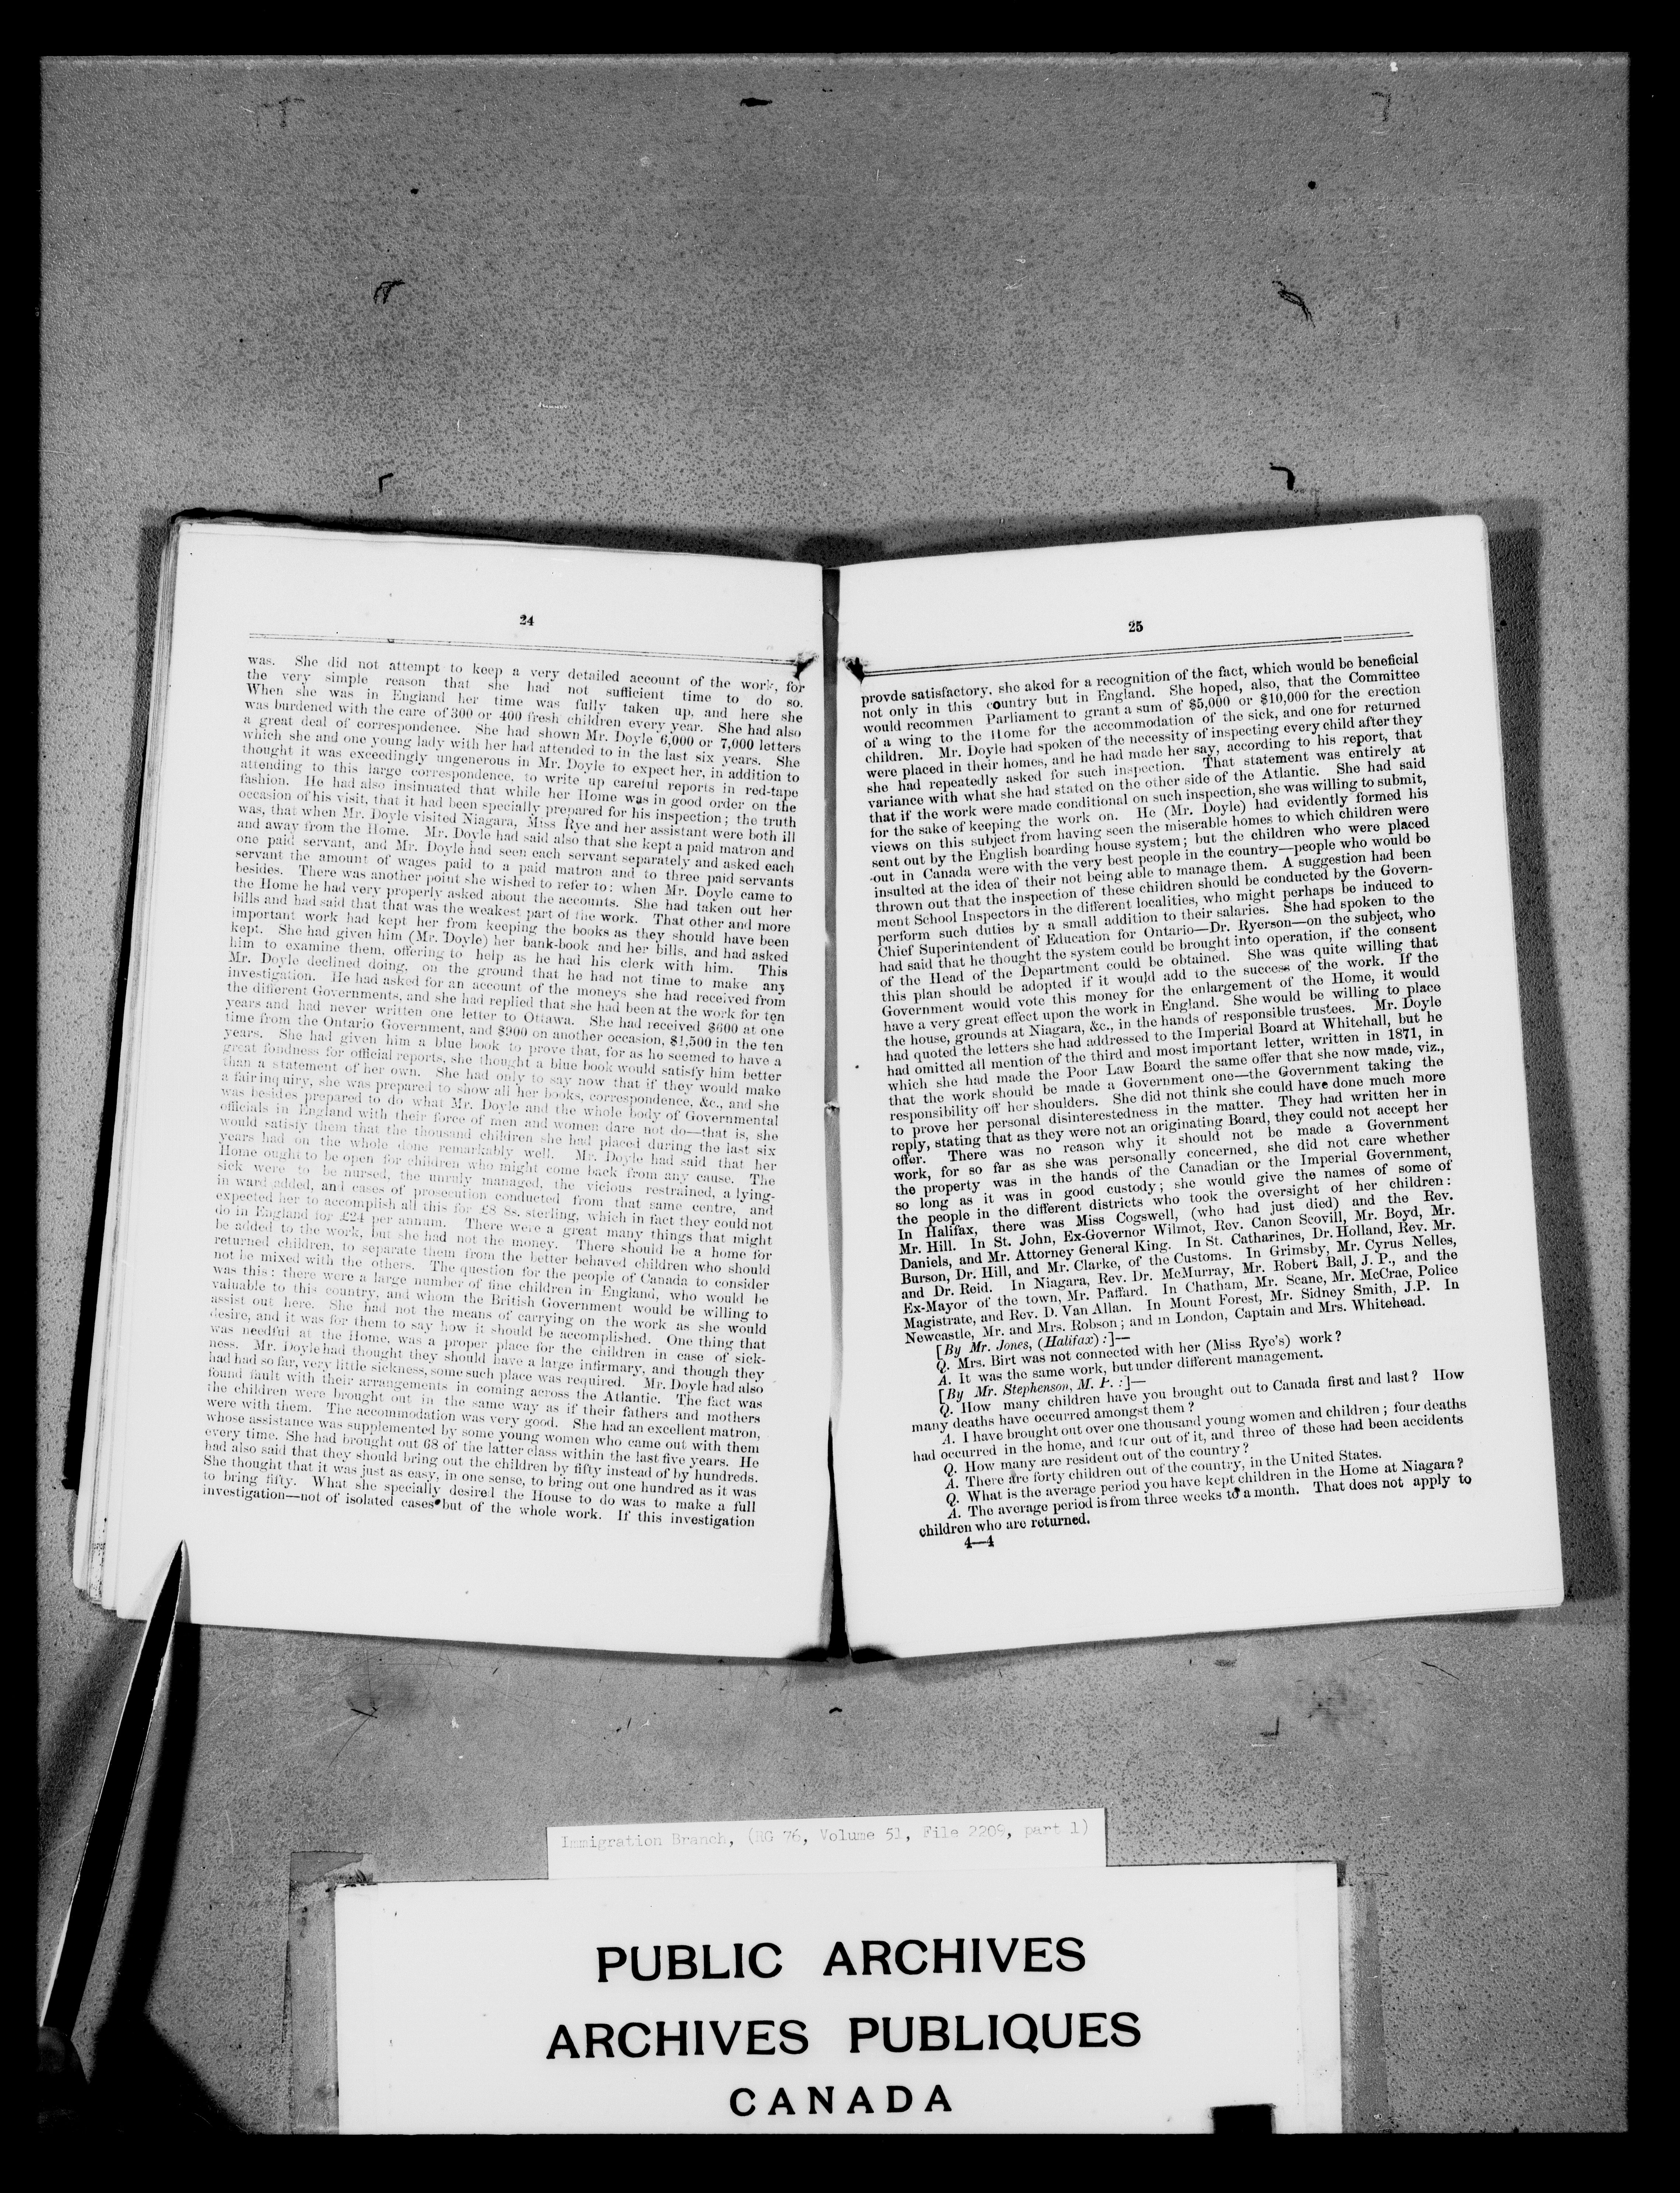 24
was. She did not attempt to keep a very detailed account of the work, for
the very simple reason that she had not sufficient time to do so.
When she was in England her time was fully taken up, and here she
was burdened with the care of 300 or 400 fresh children every year. She had also
a great deal of correspondence. She had shown Mr. Doyle 6,000 or 7,000 letters
which she and one young lady with her had attended to in the last six years. She
thought it was exceedingly ungenerous in Mr. Doyle to expect her, in addition to
attending to this large correspondence, to write up careful reports in red-tape
fashion. He had also insinuated that while her Home was in good order on the
occasion of his visit, that it had been specially prepared for his inspection; the truth
was, that when Mr. Doyle visited Niagara, Miss Rye and her assistant were both ill
and away from the Home. Mr. Doyle had said also that she kept a paid matron and
one paid servant, and Mr. Doyle had seen each servant separately and asked each
servant the amount of wages paid to a paid matron and to three paid servants
besides. There was another point she wished to refer to: when Mr. Doyle came to
the Home he had very properly asked about the accounts. She had taken out her
bills and had said that that was the weakest part of the work. That other and more
important work had kept her from keeping the books as they should have been
kept. She had given him (Mr. Doyle) her bank-book and her bills, and had asked
him to examine them, offering to help as he had his clerk with him. This
Mr. Doyle declined doing, on the ground that he had not time to make any
investigation. He had asked for an account of the moneys she had received from
the different Governments, and she had replied that she had been at the work for ten
years and had never written one letter to Ottawa. She had received $600 at one
time from the Ontario Government, and $900 on another occasion, $1,500 in the ten
years. She had given him a blue book to prove that, for as he seemed to have a
great fondness for official reports, she thought a blue book would satisfy him better
than a statement of her own. She had only to say now that if they would make
a fair inquiry, she was prepared to show all her books, correspondence, &c., and she
was besides prepared to do what Mr. Doyle and the whole body of Governmental
officials in England with their force of men and women dare not do—that is, she
would satisfy them that the thousand children she had placed during the last six
years had on the whole done remarkably well. Mr. Doyle had said that her
Home ought to be open for children who might come back from any cause. The
sick were to be nursed, the unruly managed, the vicious restrained, a lying-
in ward added, and cases of prosecution conducted from that same centre, and
expected her to accomplish all this for £8 8s. sterling, which in fact they could not
do in England for £24 per annum. There were a great many things that might
be added to the work, but she had not the money. There should be a home for
returned children, to separate them from the better behaved children who should
not be mixed with the others. The question for the people of Canada to consider
was this: there were a large number of fine children in England, who would be
valuable to this country, and whom the British Government would be willing to
assist out here. She had not the means of carrying on the work as she would
desire, and it was for them to say how it should be accomplished. One thing that
was needful at the Home, was a proper place for the children in case of sick-
ness. Mr. Doyle had thought they should have a large infirmary, and though they
had had so far, very little sickness, some such place was required. Mr. Doyle had also
found fault with their arrangements in coming across the Atlantic. The fact was
the children were brought out in the same way as if their fathers and mothers
were with them. The accommodation was very good. She had an excellent matron,
whose assistance was supplemented by some young women who came out with them
every time. She had brought out 68 of the latter class within the last five years. He
had also said that they should bring out the children by fifty instead of by hundreds.
She thought that it was just as easy, in one sense, to bring out one hundred as it was
to bring fifty. What she specially desired the House to do was to make a full
investigation—not of isolated cases but of the whole work. If this investigation
25
provde satisfactory, she aked for a recognition of the fact, which would be beneficial
not only in this country but in England. She hoped, also, that the Committee
would recommen Parliament to grant a sum of $5,000 or $10,000 for the erection
of a wing to the Home for the accommodation of the sick, and one for returned
children. Mr. Doyle had spoken of the necessity of inspecting every child after they
were placed in their homes, and he had made her say, according to his report, that
she had repeatedly asked for such inspection. That statement was entirely at
variance with what she had stated on the other side of the Atlantic. She had said
that if the work were made conditional on such inspection, she was willing to submit,
for the sake of keeping the work on. He (Mr. Doyle) had evidently formed his
views on this subject from having seen the miserable homes to which children were
sent out by the English boarding house system; but the children who were placed
-out in Canada were with the very best people in the country—people who would be
insulted at the idea of their not being able to manage them. A suggestion had been
thrown out that the inspection of these children should be conducted by the Govern-
ment School Inspectors in the different localities, who might perhaps be induced to
perform such duties by a small addition to their salaries. She had spoken to the
Chief Superintendent of Education for Ontario—Dr. Ryerson—on the subject, who
had said that he thought the system could be brought into operation, if the consent
of the Head of the Department could be obtained. She was quite willing that
this plan should be adopted if it would add to the success of the work. If the
Government would vote this money for the enlargement of the Home, it would
have a very great effect upon the work in England. She would be willing to place
the house, grounds at Niagara, &c., in the hands of responsible trustees. Mr. Doyle
had quoted the letters she had addressed to the Imperial Board at Whitehall, but he
had omitted all mention of the third and most important letter, written in 1871, in
which she had made the Poor Law Board the same offer that she now made, viz.,
that the work should be made a Government one—the Government taking the
responsibility off her shoulders. She did not think she could have done much more
to prove her personal disinterestedness in the matter. They had written her in
reply, stating that as they were not an originating Board, they could not accept her
offer. There was no reason why it should not be made a Government
work, for so far as she was personally concerned, she did not care whether
the property was in the hands of the Canadian or the Imperial Government,
so long as it was in good custody; she would give the names of some of
the people in the different districts who took the oversight of her children:
In Halifax, there was Miss Cogswell, (who had just died) and the Rev.
Mr. Hill. In St. John, Ex-Governor Wilmot, Rev. Canon Scovill, Mr. Boyd, Mr.
Daniels, and Mr. Attorney General King. In St. Catharines, Dr. Holland, Rev. Mr.
Burson, Dr. Hill, and Mr. Clarke, of the Customs. In Grimsby, Mr. Cyrus Nelles,
and Dr. Reid. In Niagara, Rev. Dr. McMurray, Mr. Robert Ball, J. P., and the
Ex-Mayor of the town, Mr. Paffard. In Chatham, Mr. Scane, Mr. McCrae, Police
Magistrate, and Rev. D. Van Allan. In Mount Forest, Mr. Sidney Smith, J.P. In
Newcastle, Mr. and Mrs. Robson; and in London, Captain and Mrs. Whitehead.
[By Mr. Jones, (Halifax):]—
Q. Mrs. Birt was not connected with her (Miss Rye's) work?
A. It was the same work, but under different management.
[By Mr. Stephenson, M. P. :]—
Q. How many children have you brought out to Canada first and last? How
many deaths have occurred amongst them?
A. I have brought out over one thousand young women and children; four deaths
had occurred in the home, and four out of it, and three of these had been accidents
Q. How many are resident out of the country?
A. There are forty children out of the country, in the United States.
Q. What is the average period you have kept children in the Home at Niagara?
A. The average period is from three weeks to a month. That does not apply to
children who are returned.
4—4
Immigration Branch, (RG 76, Volume 51, File 2209, part 1)
PUBLIC ARCHIVES
ARCHIVES PUBLIQUES
CANADA